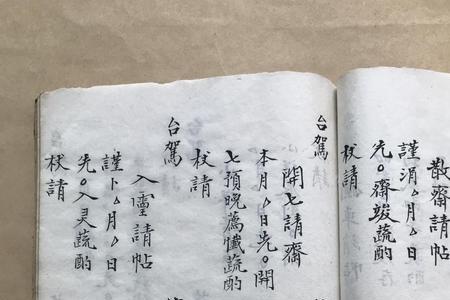 散齋請帖
謹涓厶月厶日
先○齋竣蔬酌
杖請
台駕
開七請齋
本月厶日先○開
七預晚薦懺蔬酌
杖請
台駕
入靈請帖
謹卜厶月厶日
先○入灵蔬酌
杖請